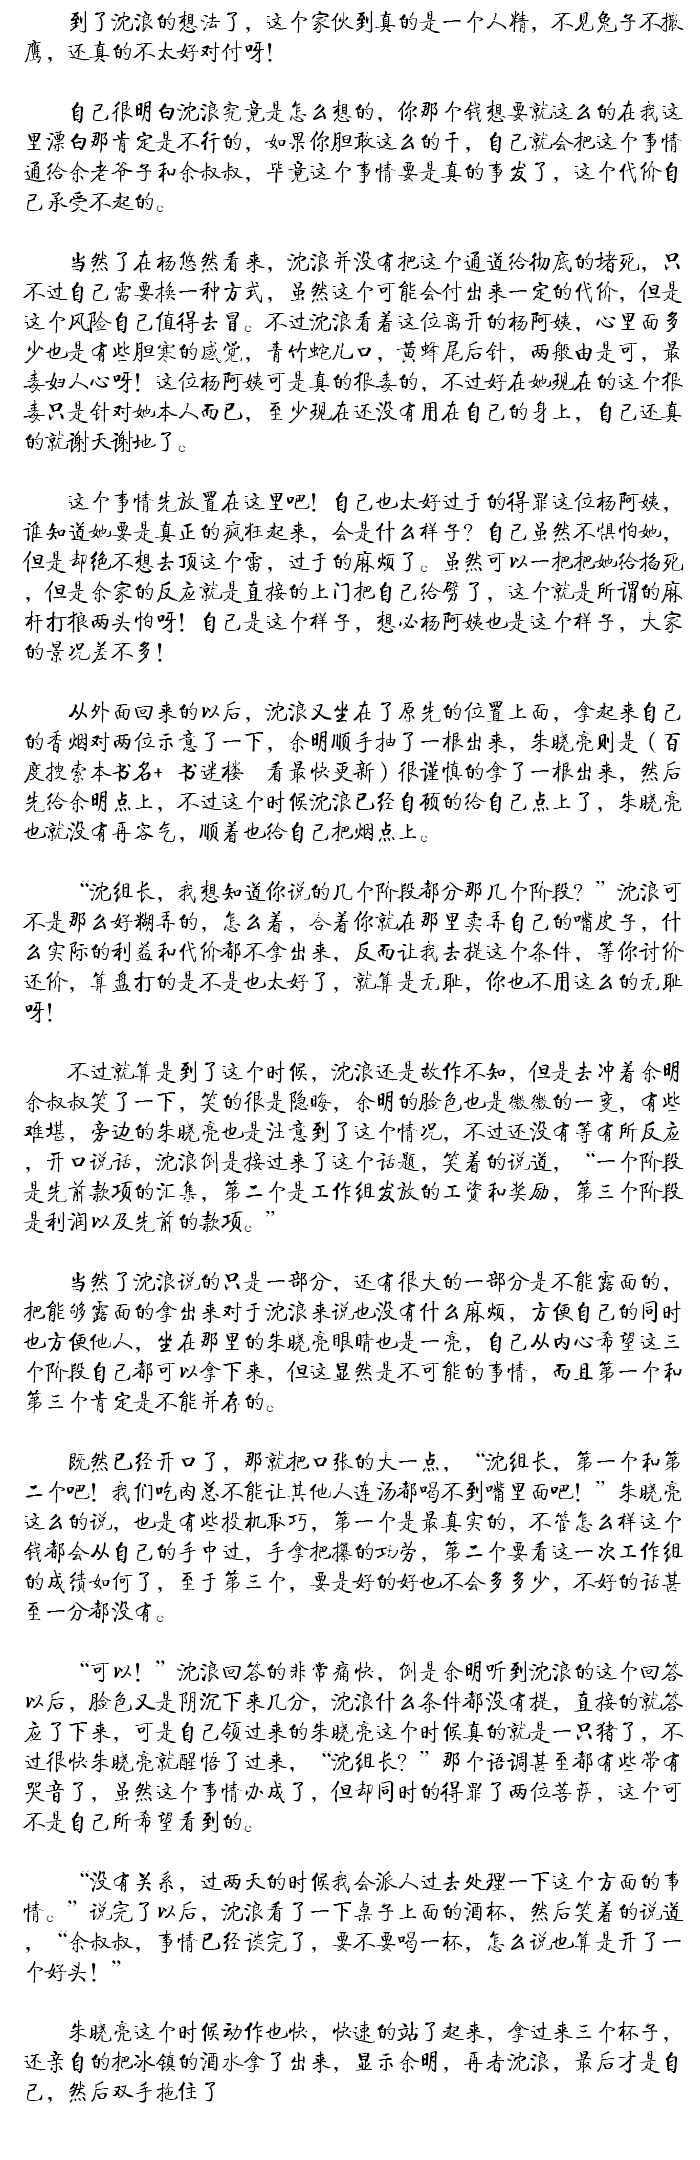 到了沈浪的想法了，这个家伙到真的是一个人精，不见兔子不撒
鹰，还真的不太好对付呀！
自己很明白沈浪究竟是怎么想的，你那个钱想要就这么的在我这
里漂白那肯定是不行的，如果你胆敢这么的干，自己就会把这个事情
通给余老爷子和余叔叔，毕竟这个事情要是真的事发了，这个代价自
己承受不起的。
当然了在杨悠然看来，沈浪并没有把这个通道给彻底的堵死，只
不过自己需要换一种方式，虽然这个可能会付出来一定的代价，但是
这个风险自己值得去冒。不过沈浪看着这位离开的杨阿姨，心里面多
少也是有些胆寒的感觉，青竹蛇儿口，黄蜂尾后针，两般由是可，最
毒妇人心呀！这位杨阿姨可是真的狠毒的，不过好在她现在的这个狠
毒只是针对她本人而已，至少现在还没有用在自己的身上，自己还真
的就谢天谢地了。
这个事情先放置在这里吧！自己也太好过于的得罪这位杨阿姨，
谁知道她要是真正的疯狂起来，会是什么样子？自己虽然不惧怕她，
但是却绝不想去顶这个雷，过于的麻烦了。虽然可以一把把她给掐死
，但是余家的反应就是直接的上门把自己给劈了，这个就是所谓的麻
杆打狼两头怕呀！自己是这个样子，想必杨阿姨也是这个样子，大家
的景况差不多！
从外面回来的以后，沈浪又坐在了原先的位置上面，拿起来自己
的香烟对两位示意了一下，余明顺手抽了一根出来，朱晓亮则是（百
度搜索本书名+ 书迷楼 看最快更新）很谨慎的拿了一根出来，然后
先给余明点上，不过这个时候沈浪已经自顾的给自己点上了，朱晓亮
也就没有再客气，顺着也给自己把烟点上。
“沈组长，我想知道你说的几个阶段都分那几个阶段？”沈浪可
不是那么好糊弄的，怎么着，合着你就在那里卖弄自己的嘴皮子，什
么实际的利益和代价都不拿出来，反而让我去提这个条件，等你讨价
还价，算盘打的是不是也太好了，就算是无耻，你也不用这么的无耻
呀！
不过就算是到了这个时候，沈浪还是故作不知，但是去冲着余明
余叔叔笑了一下，笑的很是隐晦，余明的脸色也是微微的一变，有些
难堪，旁边的朱晓亮也是注意到了这个情况，不过还没有等有所反应
，开口说话，沈浪倒是接过来了这个话题，笑着的说道，“一个阶段
是先前款项的汇集，第二个是工作组发放的工资和奖励，第三个阶段
是利润以及先前的款项。”
当然了沈浪说的只是一部分，还有很大的一部分是不能露面的，
把能够露面的拿出来对于沈浪来说也没有什么麻烦，方便自己的同时
也方便他人，坐在那里的朱晓亮眼睛也是一亮，自己从内心希望这三
个阶段自己都可以拿下来，但这显然是不可能的事情，而且第一个和
第三个肯定是不能并存的。
既然已经开口了，那就把口张的大一点，“沈组长，第一个和第
二个吧！我们吃肉总不能让其他人连汤都喝不到嘴里面吧！”朱晓亮
这么的说，也是有些投机取巧，第一个是最真实的，不管怎么样这个
钱都会从自己的手中过，手拿把攥的功劳，第二个要看这一次工作组
的成绩如何了，至于第三个，要是好的好也不会多多少，不好的话甚
至一分都没有。
“可以！”沈浪回答的非常痛快，倒是余明听到沈浪的这个回答
以后，脸色又是阴沉下来几分，沈浪什么条件都没有提，直接的就答
应了下来，可是自己领过来的朱晓亮这个时候真的就是一只猪了，不
过很快朱晓亮就醒悟了过来，“沈组长？”那个语调甚至都有些带有
哭音了，虽然这个事情办成了，但却同时的得罪了两位菩萨，这个可
不是自己所希望看到的。
“没有关系，过两天的时候我会派人过去处理一下这个方面的事
情。”说完了以后，沈浪看了一下桌子上面的酒杯，然后笑着的说道
，“余叔叔，事情已经谈完了，要不要喝一杯，怎么说也算是开了一
个好头！”
朱晓亮这个时候动作也快，快速的站了起来，拿过来三个杯子，
还亲自的把冰镇的酒水拿了出来，显示余明，再者沈浪，最后才是自
己，然后双手拖住了